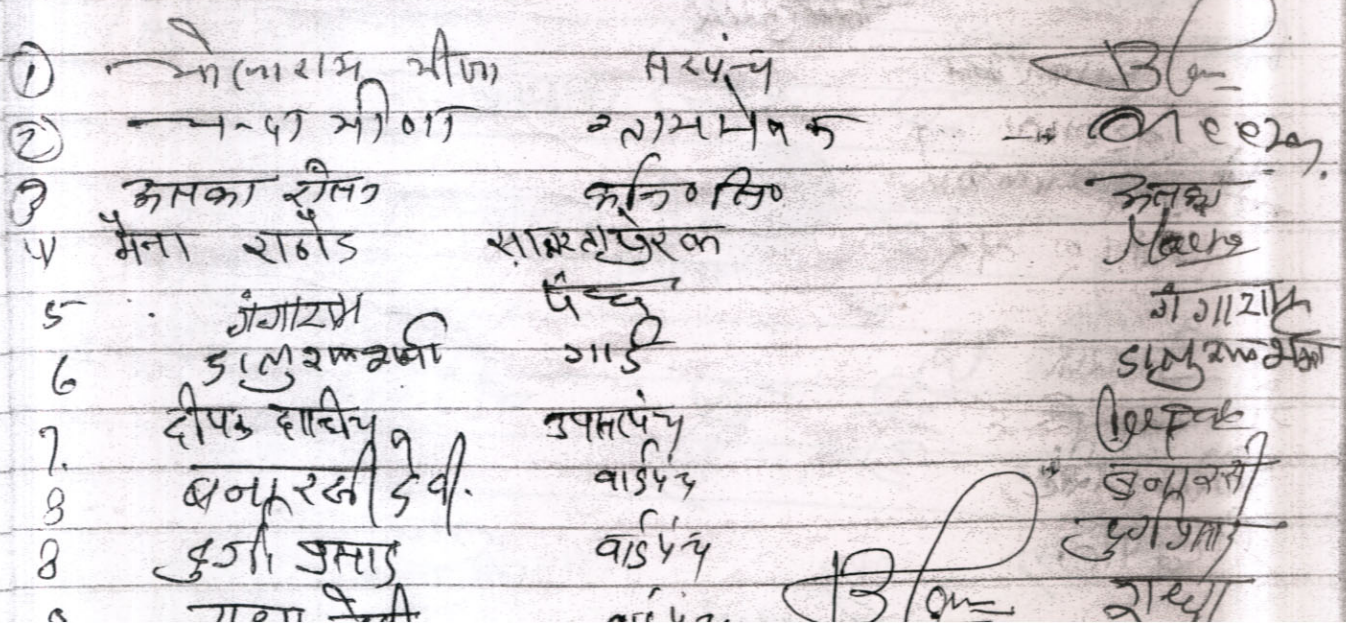 ① भोलाराम मीणा सरपंच
② चन्दा मीणा ग्रामसेवक Meena
3 अलका कनि० लि० अलका
4 मैना राठौड साक्षरता प्रेरक Maina
5 गंगाराम पंच गंगाराम
6 डालुराम गार्ड डालुराम
7. दीपक दाधीच उपसरपंच Deepak
8 बनारसी देवी. वार्डपंच बनारसी
8 दुर्गा प्रसाद वार्डपंच दुर्गाप्रसाद
राधा देवी वार्डपंच राधा